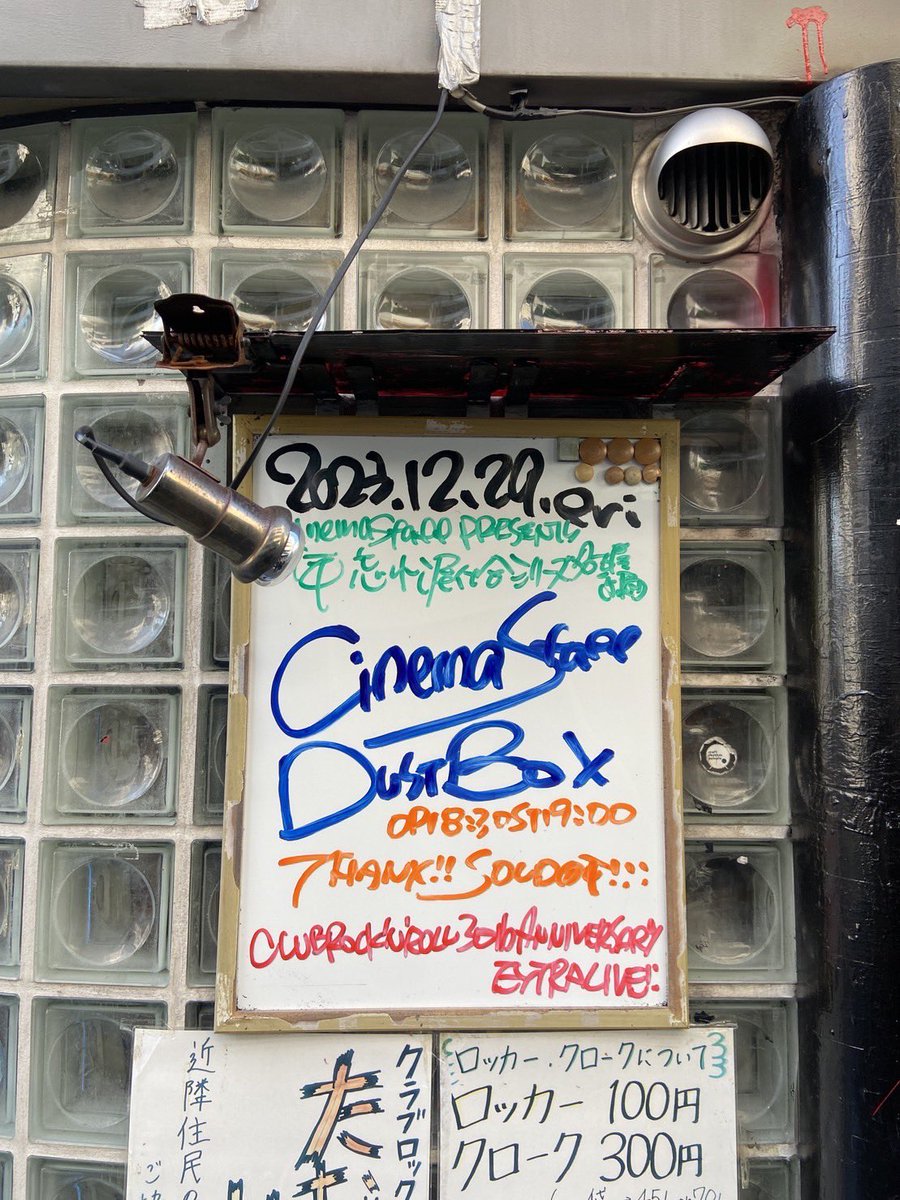 2023.12.29.Fri
cinema staff PRESENTS
cinema Staff
DUST BOX
OP18:30 ST19:00
THANK!! SOLDOUT!!!
CLUB ROCK'N'ROLL 30th ANNIVERSARY
EXTRA LIVE!
近隣住民の
クラブロック
ロッカー・クロークについて
ロッカー 100円
クローク 300円